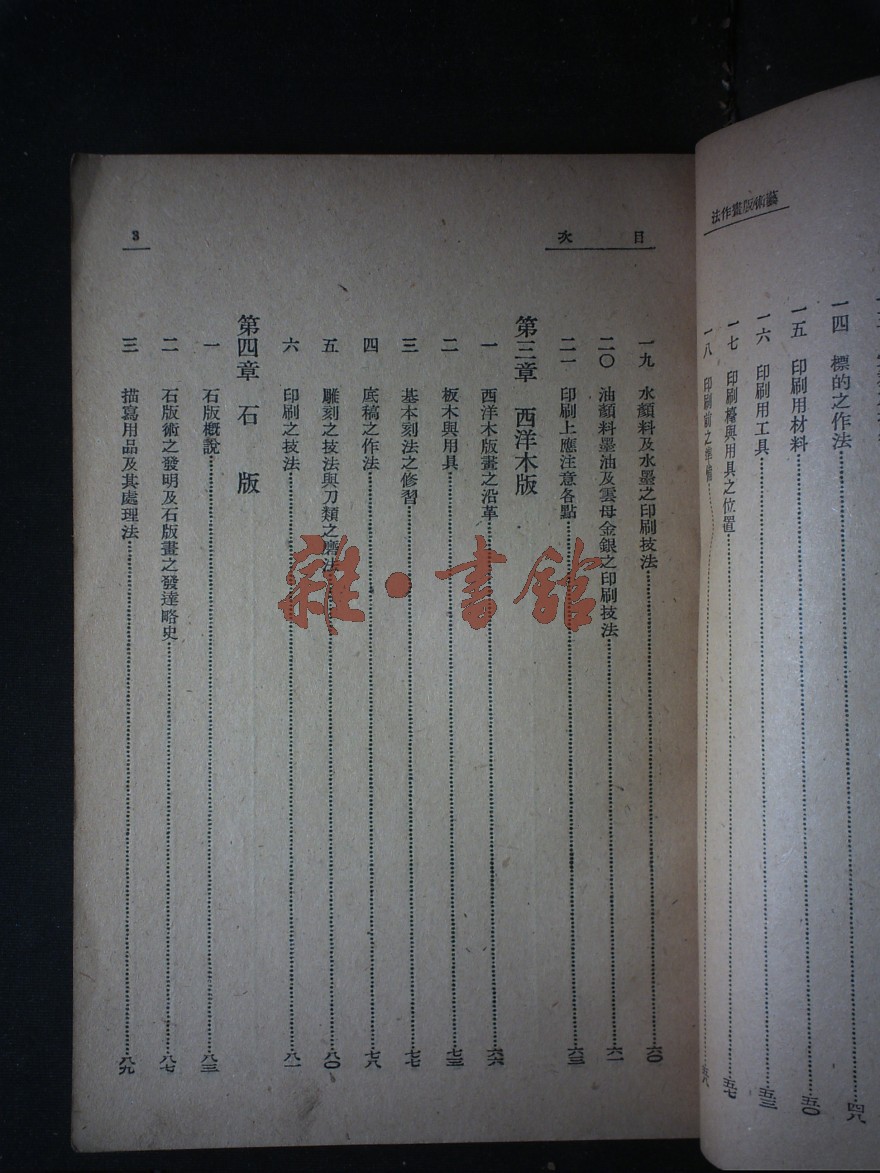 藝術版畫作法
一四 標的之作法 四八
一五 印刷用材料 五〇
一六 印刷用工具 五三
一七 印刷檯與用具之位置 五七
一八 印刷前之準備
目次
3
一九 水顏料及水墨之印刷技法 六〇
二〇 油顏料墨油及雲母金銀之印刷技法 六一
二一 印刷上應注意各點 六三
第三章 西洋木版
一 西洋木版畫之沿革 六六
二 板木與用具 七三
三 基本刻法之修習 七七
四 底稿之作法 七八
五 雕刻之技法與刀類之磨法 八〇
六 印刷之技法 八一
第四章 石版
一 石版概說 八三
二 石版術之發明及石版畫之發達略史 八七
三 描寫用品及其處理法 八九
雜·書館